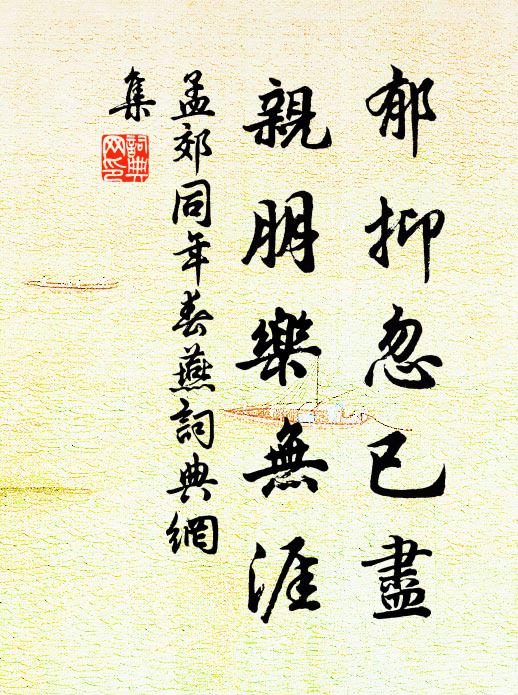 郁抑忽已盡
親朋樂無涯
孟郊同年春燕詞典網
集
詞典
网印